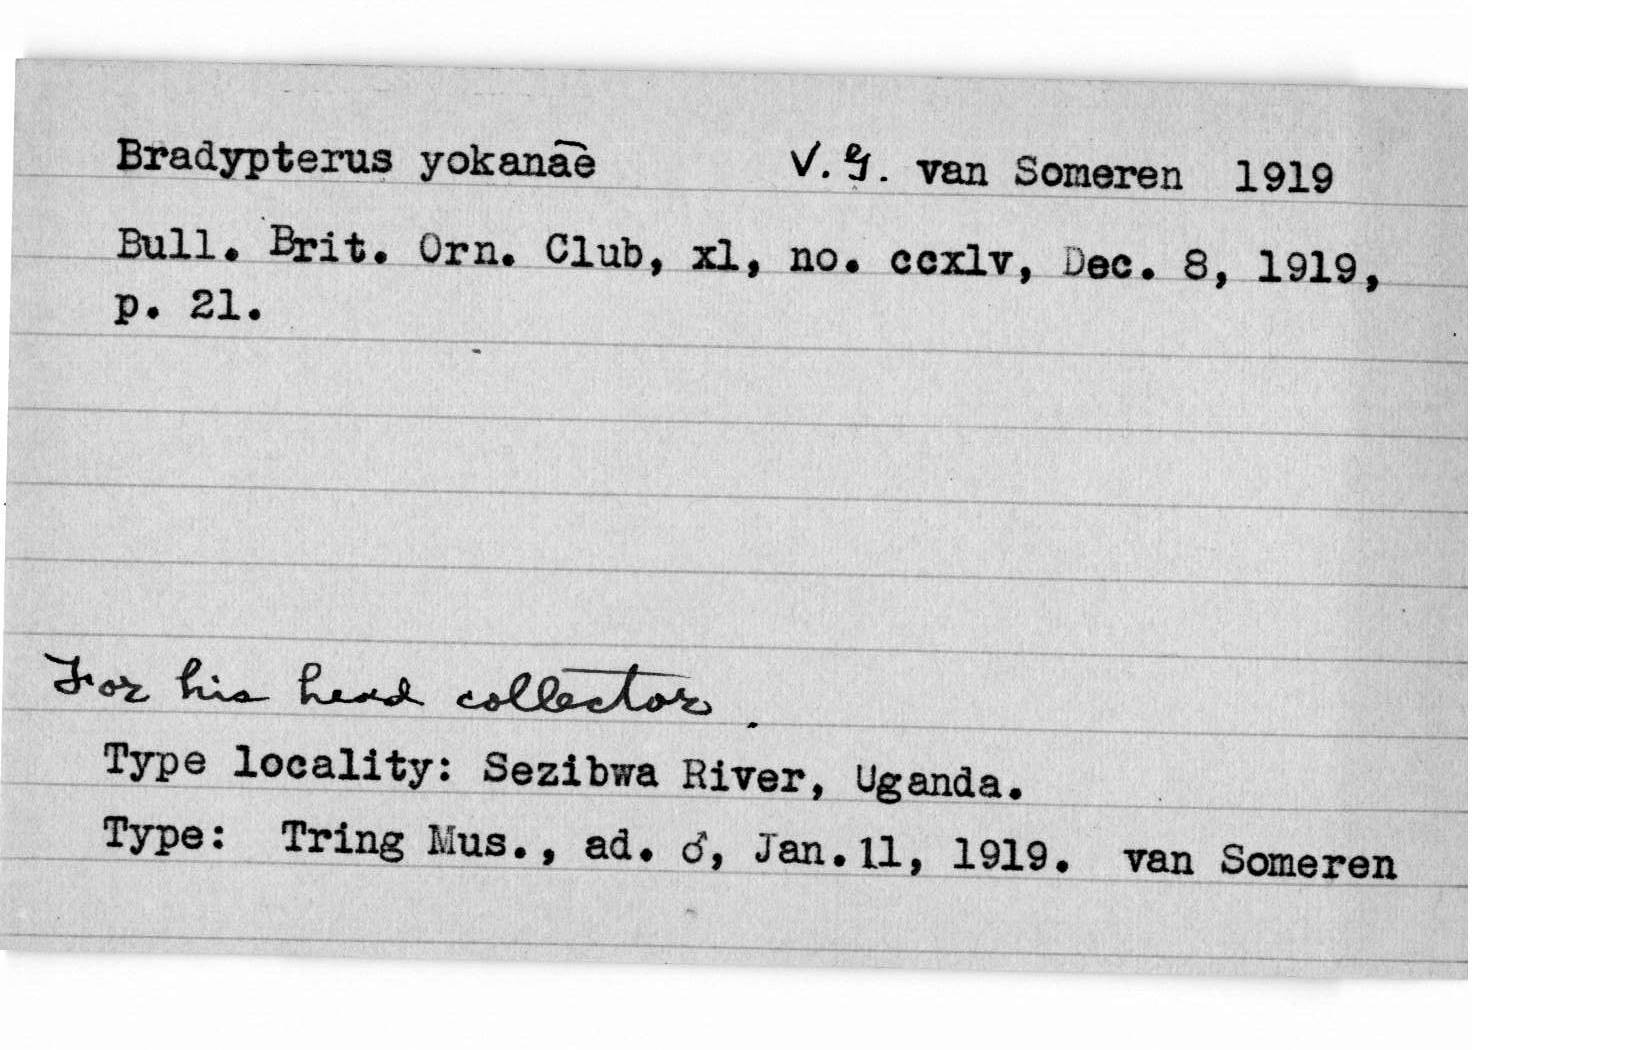 Bradypterus yokanae V. G. van Someren 1919
Bull. Brit. Orn. Club, xl, no. ccxlv, Dec. 8, 1919,
p. 21.
For his head collector.
Type locality: Sezibwa River, Uganda.
Type: Tring Mus., ad. ♂, Jan. 11, 1919. van Someren